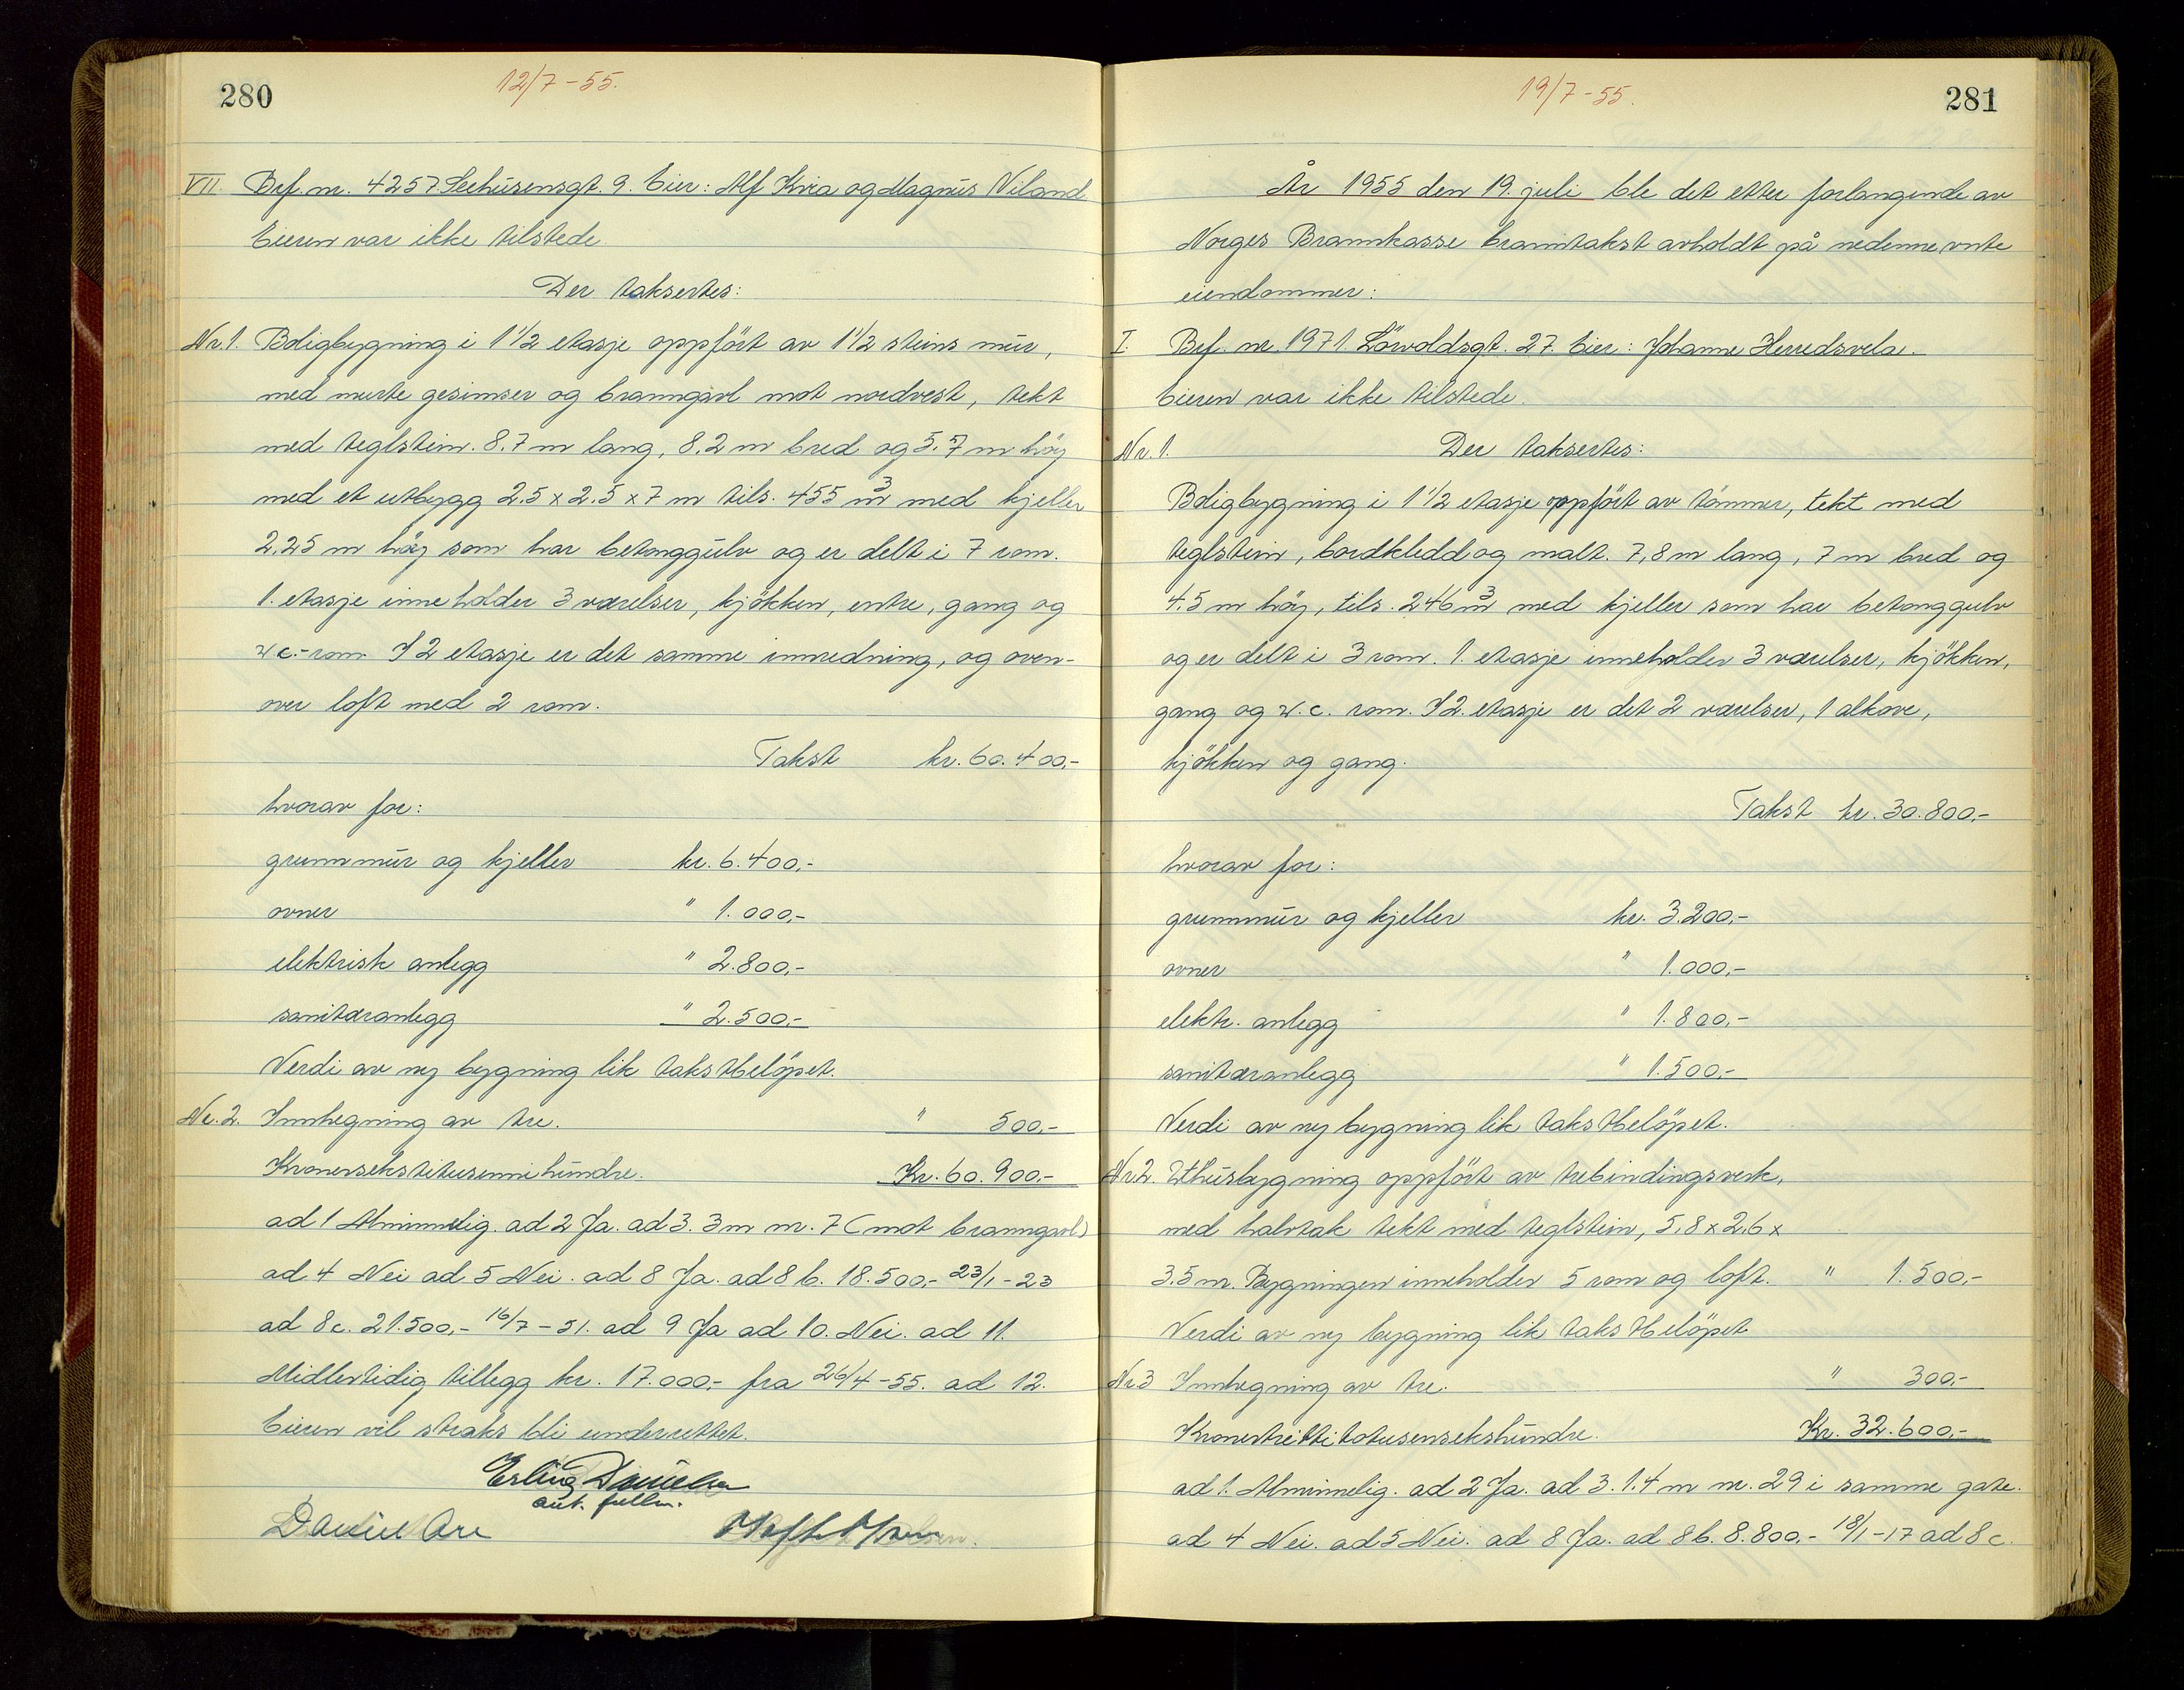 280
12/7-55.
VII. Brf. nr. 4257 Seehusensgt. 9. Eier: Alf Kvia og Magnus Viland
Eieren var ikke tilstede.
Der taksertes:
Nr. 1. Boligbygning i 1 1/2 etasje oppfört av 1 1/2 steins mur,
med murte gesimser og branngavl mot nordvest, tekt
med teglstein. 8.7 m lang, 8.2 m bred og 5.7 m höy
med et utbygg 2.5 x 2.5 x 7 m tils. 455 m³ med kjeller
2.25 m höy som har betonggulv og er delt i 7 rom.
1. etasje inneholder 3 værelser, kjökken, entre, gang og
w c.-rom I 2 etasje er det samme innredning, og oven-
over loft med 2 rom.
Takst kr. 60.400,-
hvorav for:
grunnmur og kjeller kr. 6.400,-
ovner " 1.000,-
elektrisk anlegg " 2.800,-
sanitæranlegg " 2.500,-
Verdi av ny bygning lik takstbelöpet.
Nr. 2. Innhegning av tre. " 500,-
Kronersekstitusennihundre. Kr. 60.900,-
ad 1 Alminnelig. ad 2 Ja. ad 3. 3 m nr. 7 (mot branngavl)
ad 4 Nei ad 5 Nei. ad 8 Ja. ad 8 b. 18.500,- 23/1-23
ad 8c. 21.500,- 16/7-51. ad 9 Ja ad 10. Nei. ad 11.
Midlertidig tillegg kr. 17.000,- fra 26/4-55. ad 12.
Eieren vil straks bli underrettet.
Erling
aut. fullm.
281
19/7-55.
År 1955 den 19. juli ble det etter forlangende av
Norges Brannkasse branntakst avholdt på nedennevnte
eiendommer:
I. Brf. nr. 1971. Lövvoldsgt. 27. Eier: Johanne Herredsvela.
Eieren var ikke tilstede.
Nr. 1. Der taksertes:
Boligbygning i 1 1/2 etasje oppfört av tömmer, tekt med
teglstein, bordkledd og malt. 7,8 m lang, 7 m bred og
4.5 m höy, tils. 246 m³ med kjeller som har betonggulv
og er delt i 3 rom. 1. etasje inneholder 3 værelser, kjökken,
gang og w.c. rom. I 2. etasje er det 2 værelser, 1 alkove,
kjökken og gang.
Takst kr. 30.800,-
hvorav for:
grunnmur og kjeller kr. 3.200,-
ovner " 1.000,-
elektr. anlegg " 1.800,-
sanitæranlegg " 1.500,-
Verdi av ny bygning lik takstbelöpet.
Nr. 2. Uthusbygning oppfört av trebindingsverk,
med halvtak tekt med teglstein, 5,8 x 2,6 x
3.5 m. Bygningen inneholder 5 rom og loft. " 1.500,-
Verdi av ny bygning lik takstbelöpet
Nr. 3 Innhegning av tre. " 300,-
Kronertrettitotusensekshundre. Kr. 32.600,-
ad 1. Alminnelig. ad 2 Ja. ad 3. 1.4 m nr. 29 i samme gate.
ad 4 Nei. ad 5 Nei. ad 8 Ja. ad 8 b. 8.800,- 18/1-17 ad 8 c.